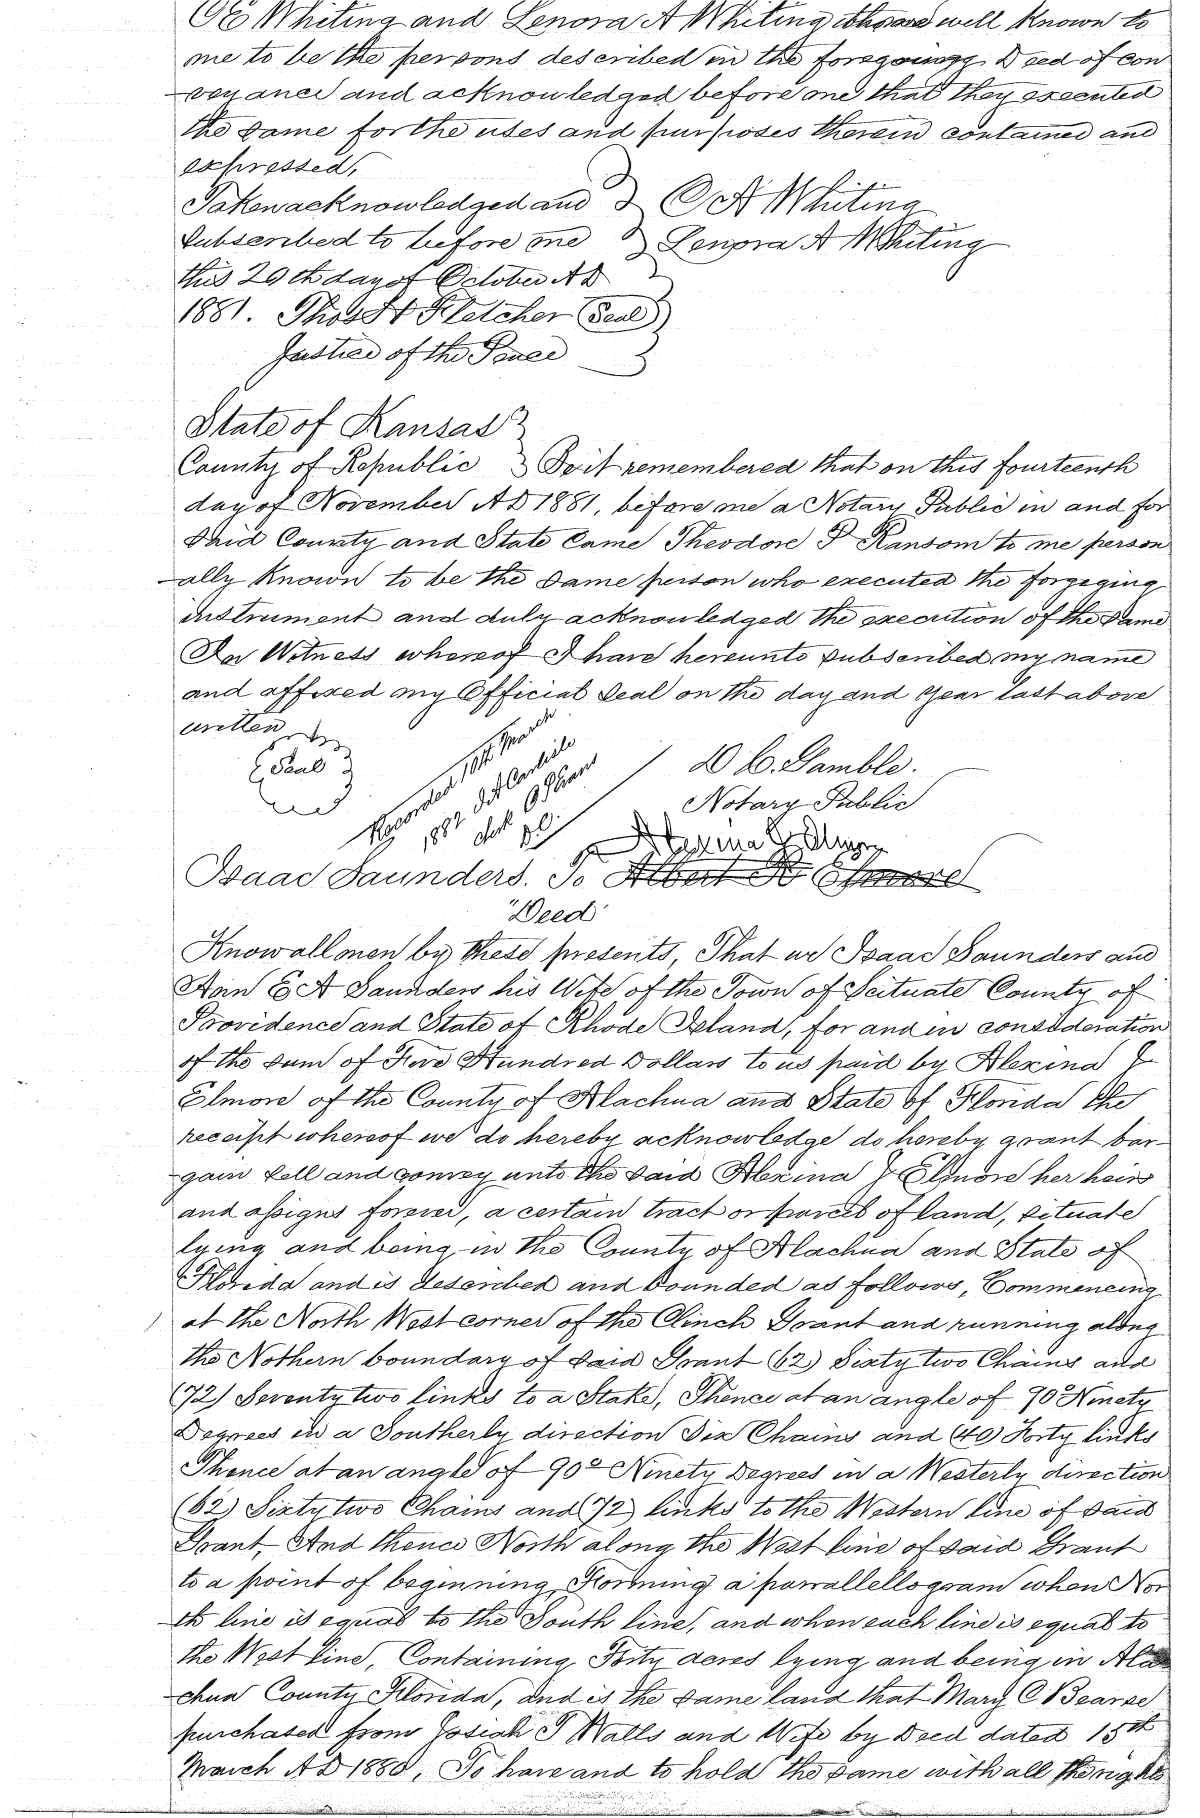 O E Whiting and Lenora A Whiting who are well known to
me to be the persons described in the foregoing Deed of con
veyance and acknowledged before me that they executed
the same for the uses and purposes therein contained and
expressed,
Taken acknowledged and } O A Whiting
Subscribed to before me } Lenora A Whiting
this 29th day of October AD
1881. Thos H Fletcher (Seal)
Justice of the Peace
State of Kansas }
County of Republic } Be it remembered that on this fourteenth
day of November AD 1881, before me a Notary Public in and for
Said County and State Came Theodore P Ransom to me person
ally known to be the same person who executed the forgeging
instrument and duly acknowledged the execution of the same
In Witness whereof I have hereunto subscribed my name
and affixed my Official Seal on the day and year last above
written
Seal
Recorded 10th March
1882 J A Carlisle
Clerk
D.C.
D C. Gamble.
Notary Public
Alexina J Elmore
Isaac Saunders. To Albert R Elmore
"Deed"
Know all men by these presents, That we Isaac Saunders and
Ann E A Saunders his Wife of the Town of Scituate County of
Providence and State of Rhode Island, for and in consideration
of the sum of Five Hundred Dollars to us paid by Alexina J
Elmore of the County of Alachua and State of Florida the
receipt whereof we do hereby acknowledge do hereby grant bar-
gain sell and convey unto the said Alexina J Elmore her heirs
and assigns forever, a certain tract or parcel of land, situate
lying and being in the County of Alachua and State of
Florida and is described and bounded as follows, Commencing
at the North West corner of the Clinch Grant and running along
the Nothern boundary of said Grant (62) Sixty two Chains and
(72) Seventy two links to a Stake, Thence at an angle of 90° Ninety
Degrees in a Southerly direction Six Chains and (40) Forty links
Thence at an angle of 90° Ninety Degrees in a Westerly direction
(62) Sixty two Chains and (72) links to the Western line of said
Grant, And thence North along the West line of said Grant
to a point of beginning Forming a parrallellogram when Nor
th line is equal to the South line, and when each line is equal to
the West line, Containing Forty acres lying and being in Ala
chua County Florida, and is the same land that Mary C. Bearse
purchased from Josiah T Walls and Wife by Deed dated 15th
March AD 1880, To have and to hold the same with all the rights